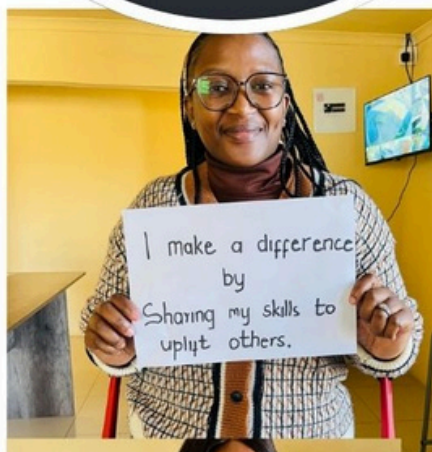 I make a difference
by
Sharing my skills to
uplyt others.